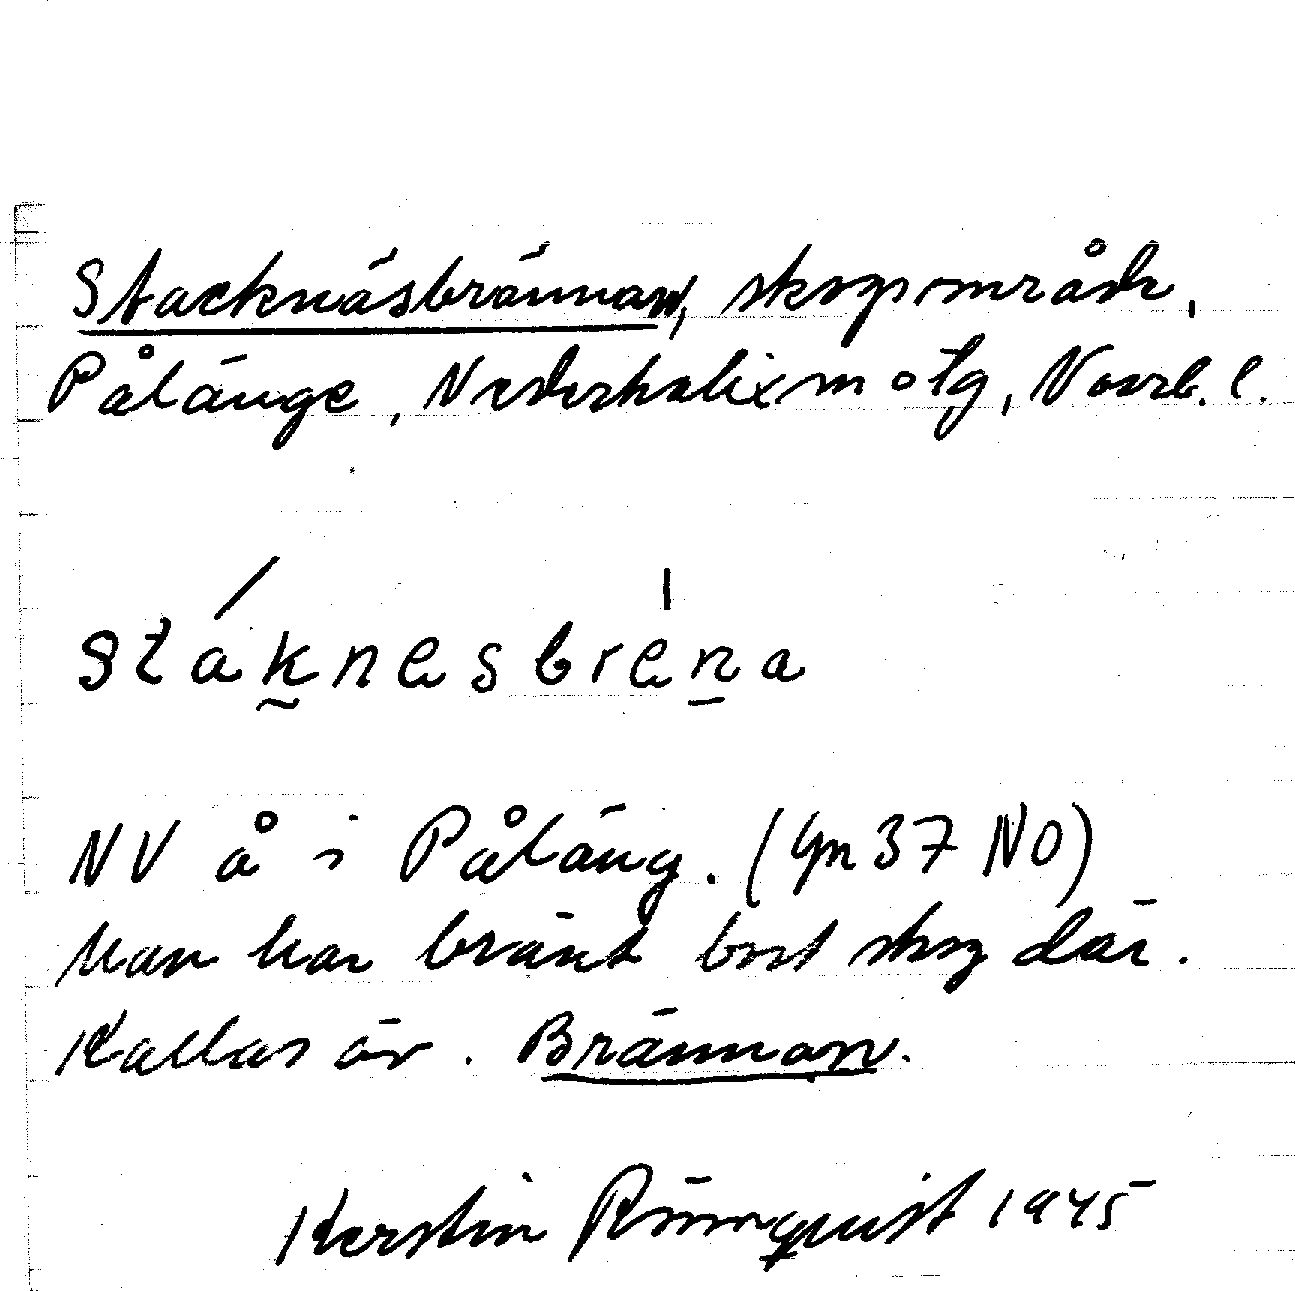 Stacknäsbrännan, skogsområde,
Pålänge, Nederkalix sn o tg, Norrb. l.
stáknesbréna
NV å i Påläng. (Gn 37 NO)
Man har bränt bort skog där.
Kallas äv. Brännan.
Kerstin Rönnquist 1945